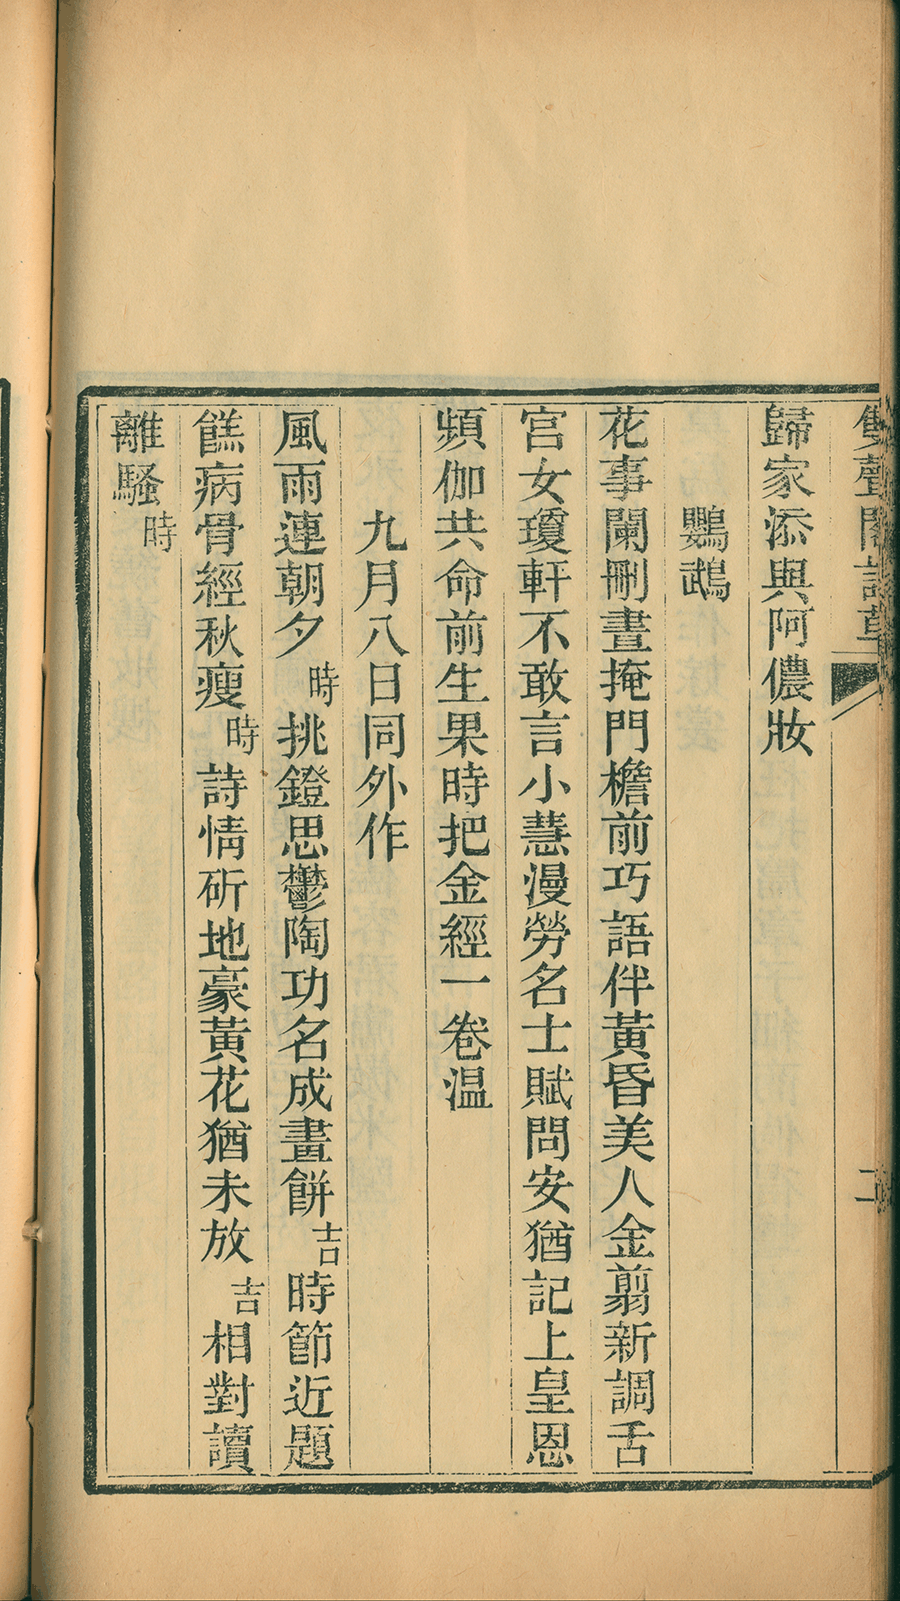 雙聲閣詩草
二
歸家添與阿儂妝
鸚鵡
花事闌刪晝掩門檐前巧語伴黃昏美人金翦新調舌
宮女瓊軒不敢言小慧漫勞名士賦問安猶記上皇恩
頻伽共命前生果時把金經一卷温
九月八日同外作
風雨連朝夕時挑鐙思鬱陶功名成畫餅吉時節近題
餻病骨經秋瘦時詩情斫地豪黃花猶未放吉相對讀
離騷時